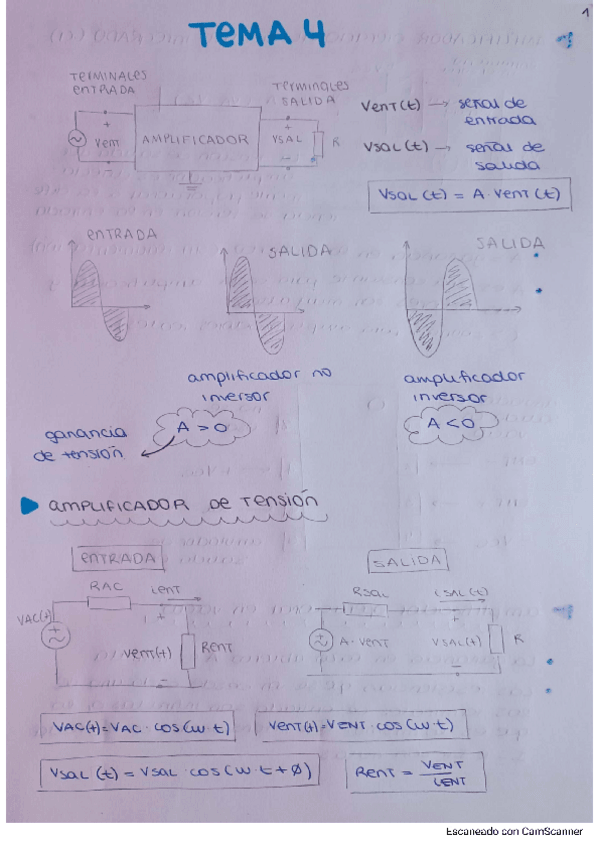 1
TEMA 4
TERMINALES
ENTRADA
TERMINALES
SALIDA
+
Vent
-
AMPLIFICADOR
+
VSAL
-
R
Vent(t) → señal de
entrada
Vsal(t) → señal de
salida
Vsal(t) = A · Vent(t)
ENTRADA
SALIDA
SALIDA
amplificador no
inversor
A > 0
amplificador
inversor
A < 0
ganancia
de tensión
AMPLIFICADOR DE TENSIÓN
ENTRADA
SALIDA
RAC
Ient
VAC(t)
+
Vent(t)
-
Rent
Rsal
ISAL(t)
A · Vent
+
VSAL(t)
-
R
VAC(t)=VAC · COS(W · t)
Vent(t)=VENT · COS(W · t)
Vsal(t) = Vsal · COS(W · t + Ø)
Rent = VENT
IENT
Escaneado con CamScanner